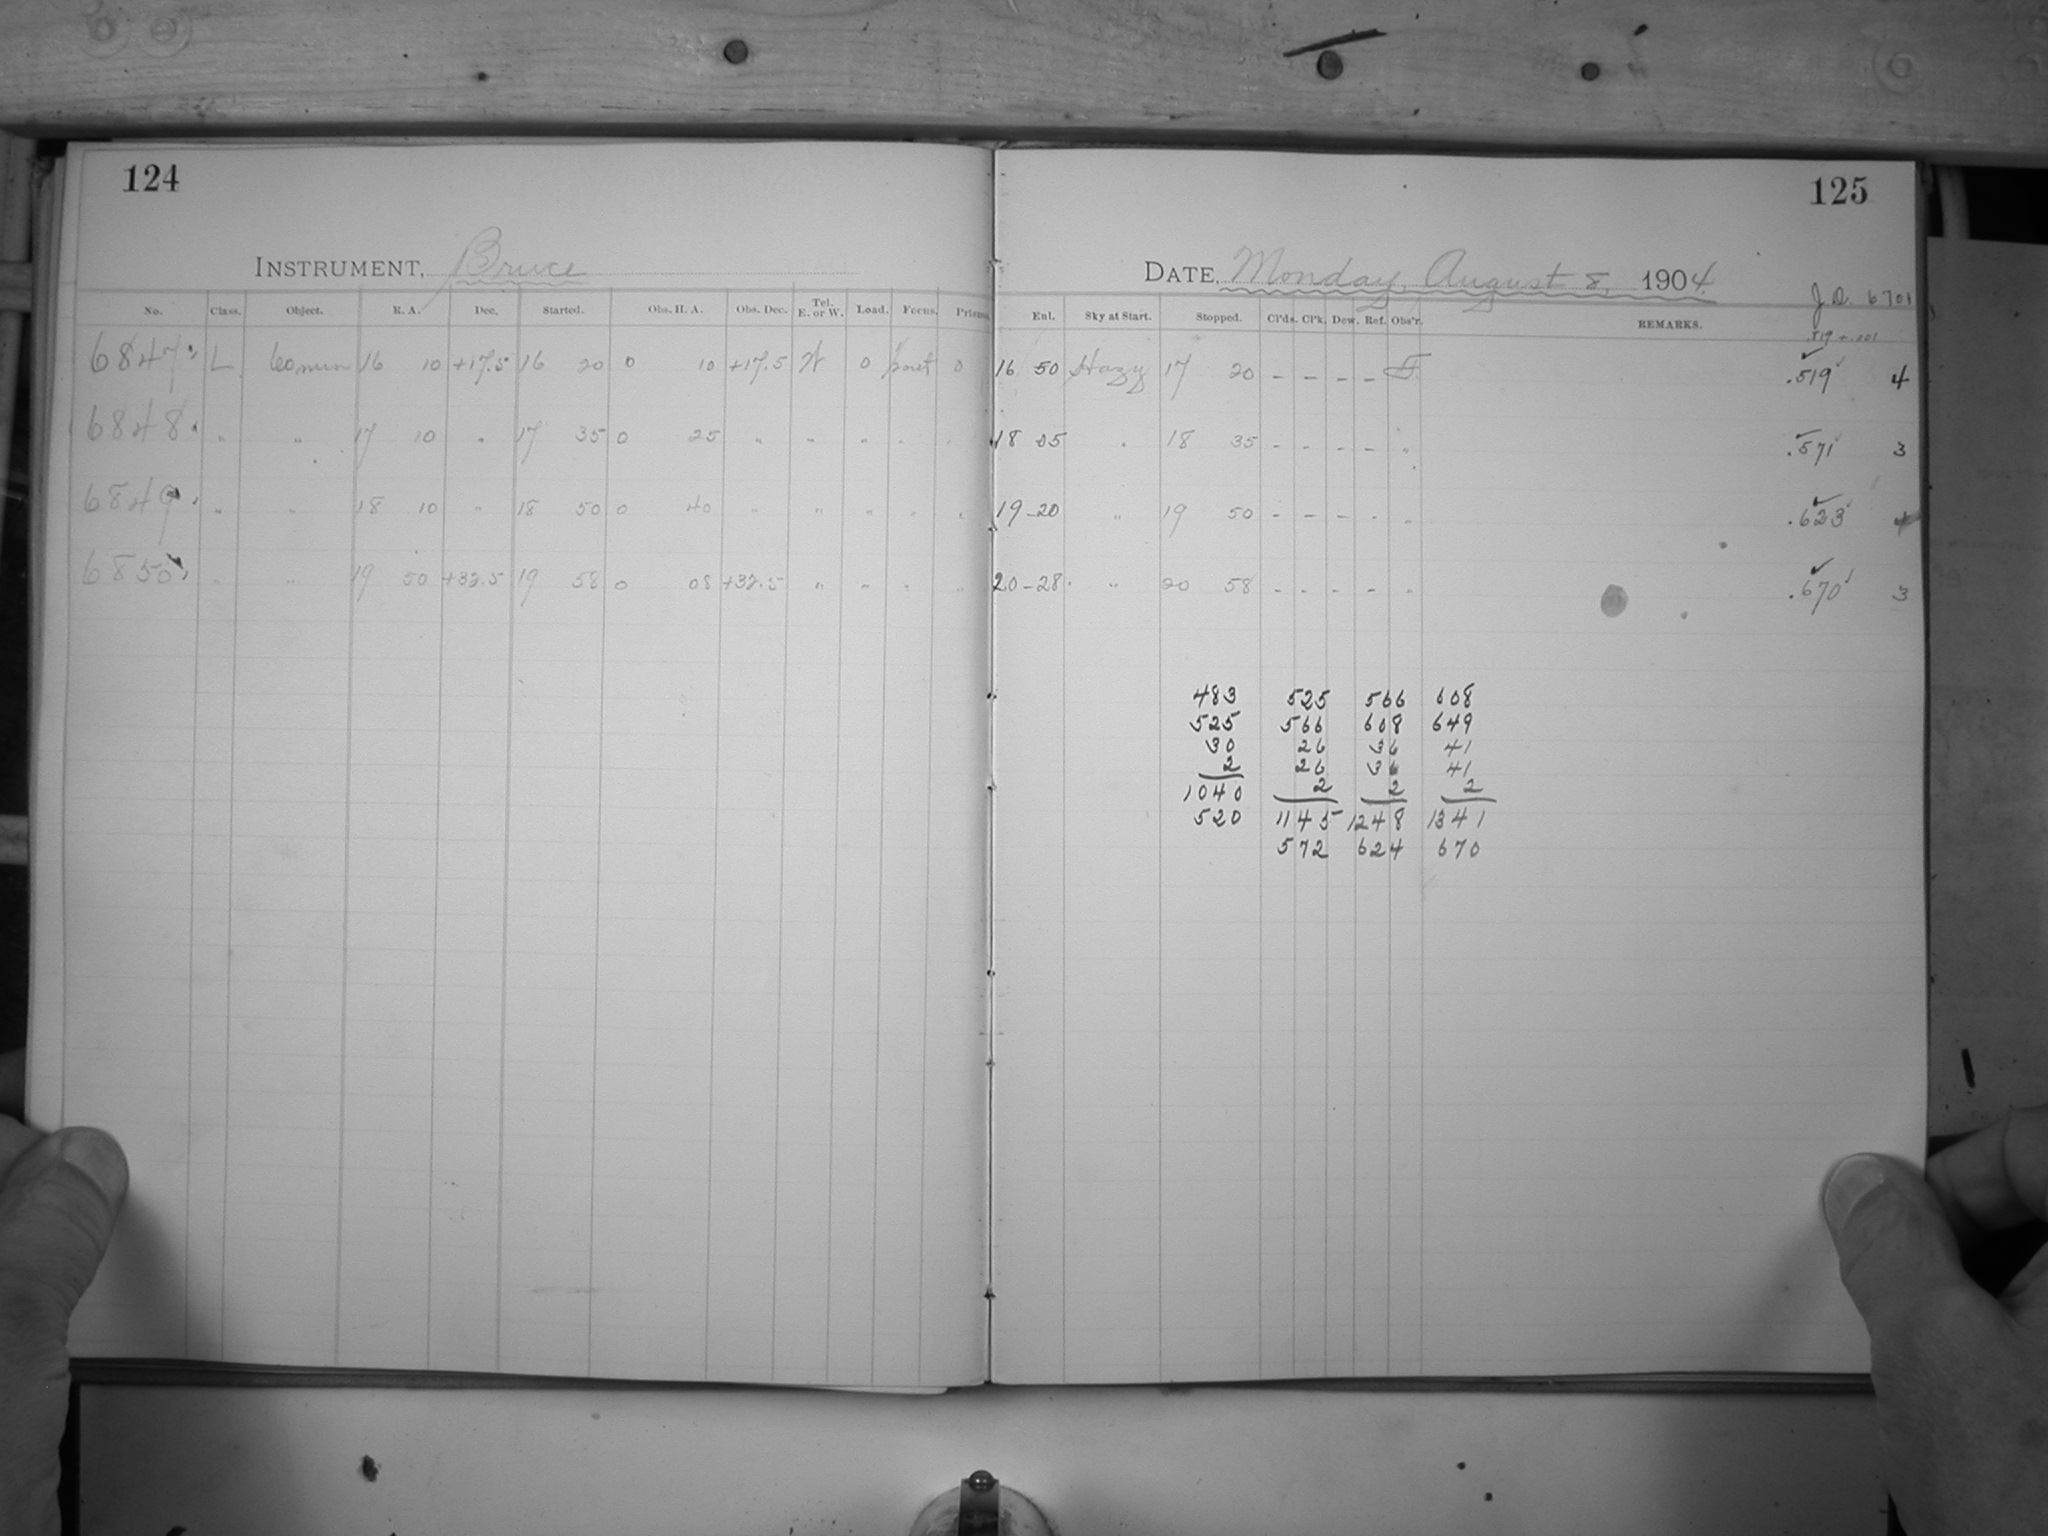 124
125
INSTRUMENT, Bruce
DATE, Monday, August 8, 1904
J.D. 6701
No. Class. Object. R. A. Dec. Started. Obs. H. A. Obs. Dec. Tel. E. or W. Load. Focus. Prisms. Enl. Sky at Start. Stopped. Cl'ds. Cl'k. Dew. Ref. Obs'r. REMARKS.
.519 + .201
6847 L 60 min 16 10 +17.5 16 20 0 10 +17.5 W 0 0 16 50 Hazy 17 20 – – – – .519 4
6848 " " 17 10 " 17 35 0 25 " " " " " 18 05 " 18 35 – – – – " .571 3
6849 " " 18 10 " 18 50 0 40 " " " " " 19-20 " 19 50 – – – – " .623 4
6850 " " 19 50 +32.5 19 58 0 08 +32.5 " " " " 20-28 " 20 58 – – – – " .670 3
483 525 566 608
525 566 608 649
30 26 36 41
2 26 36 41
1040 2 2 2
520 1145 1248 1341
572 624 670